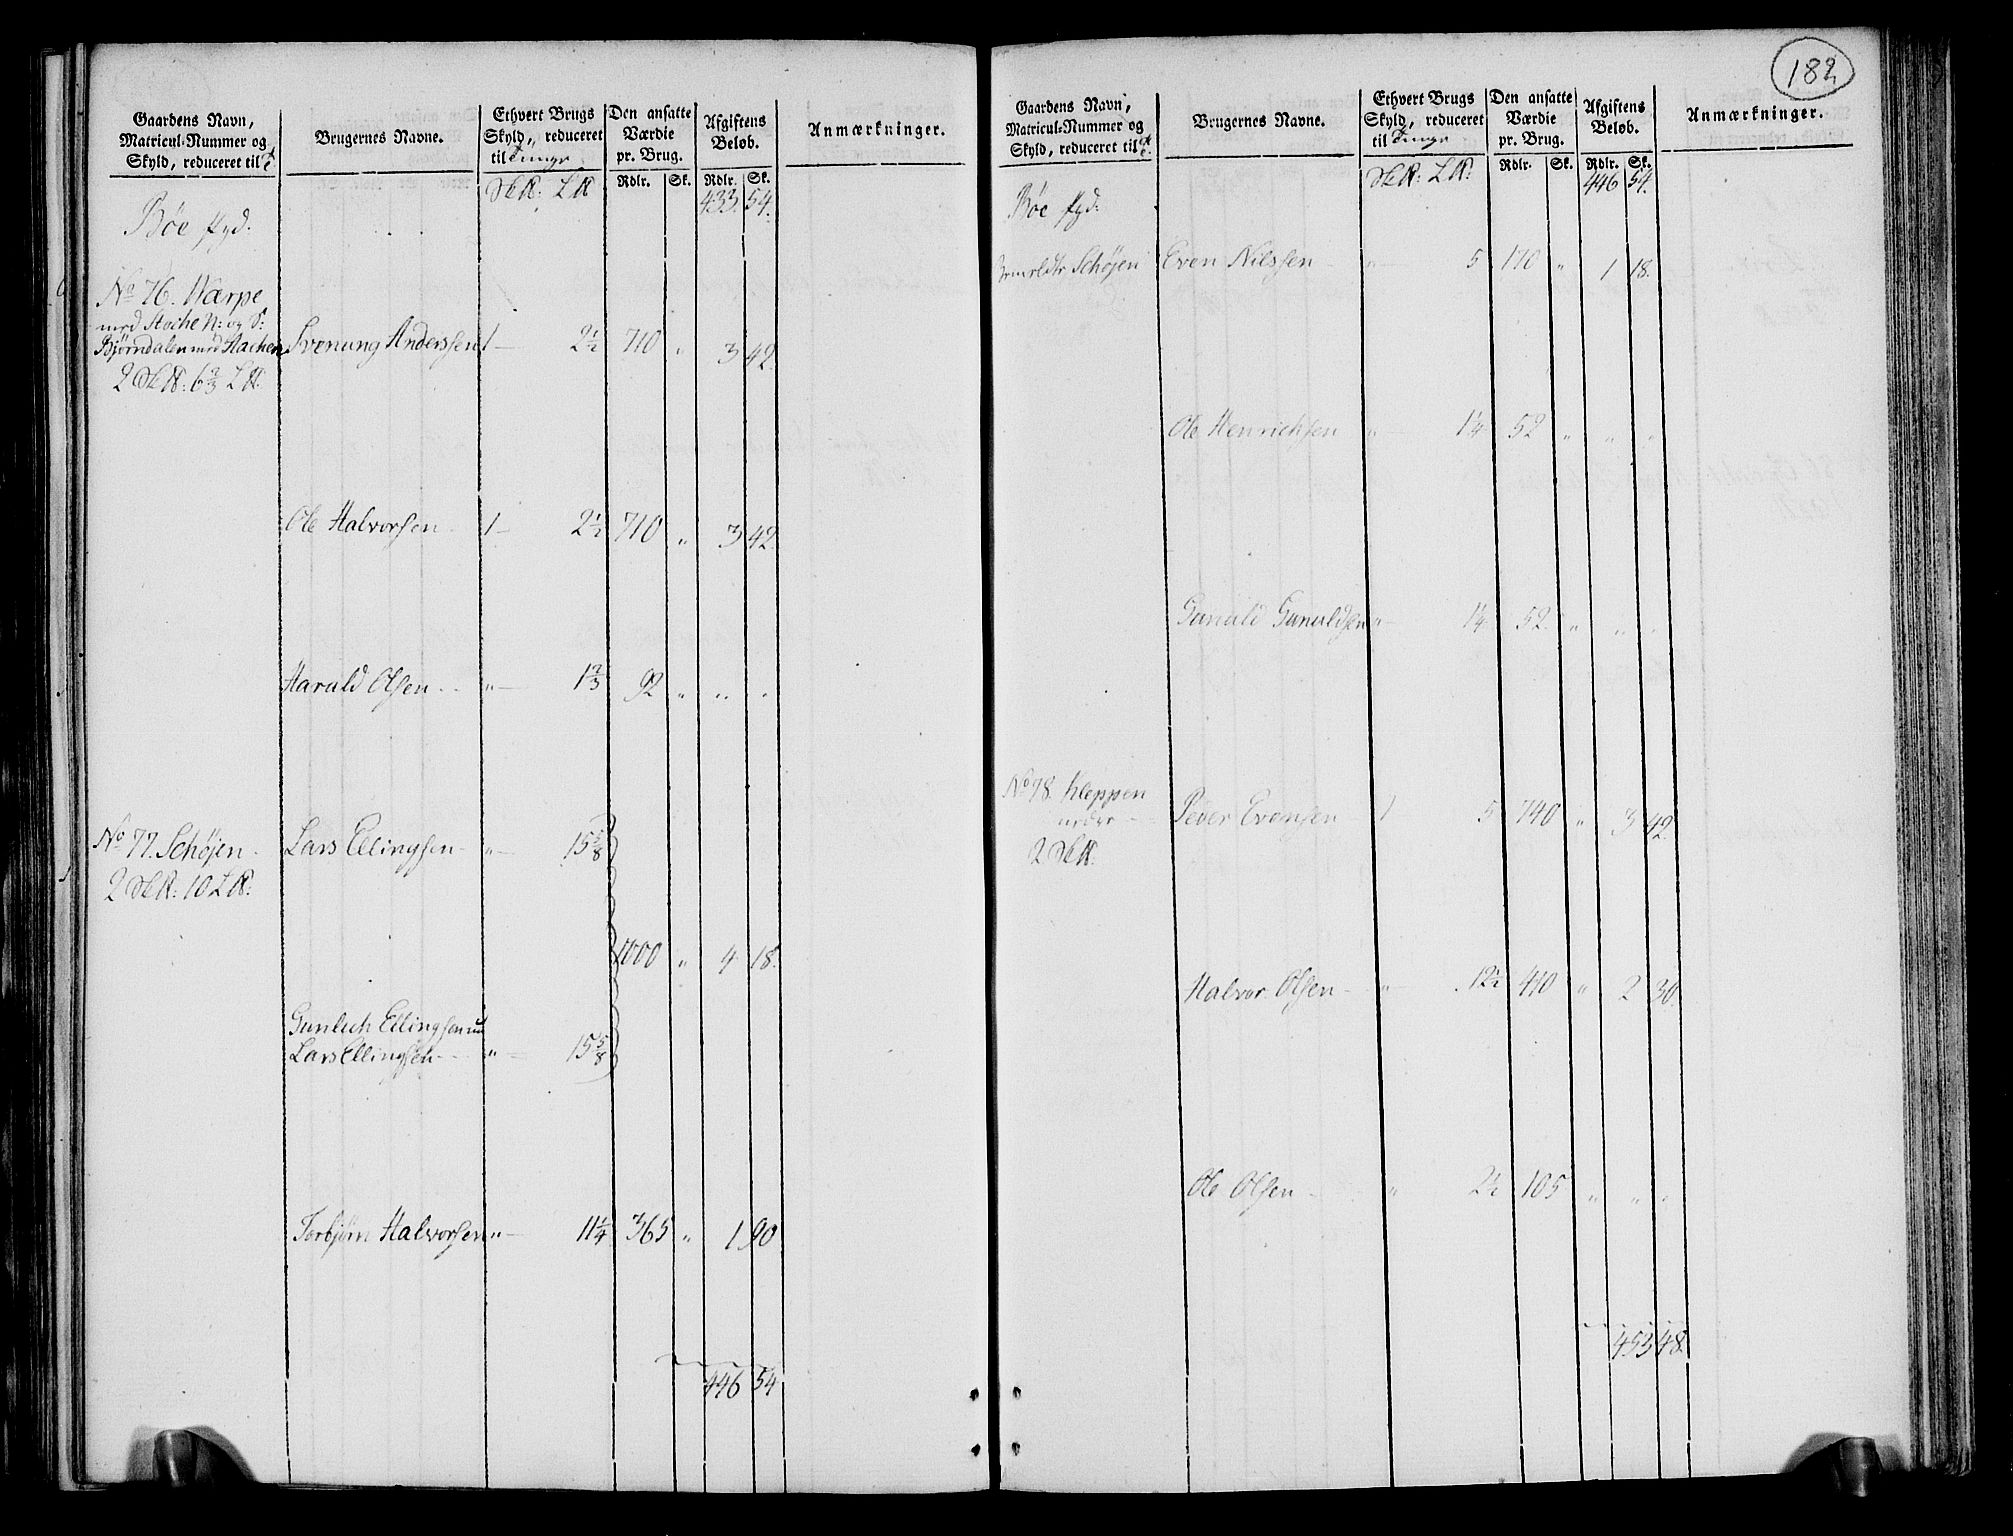 182
Gaardens Navn, Matricul-Nummer og Skyld, reduceret til
Brugernes Navne.
Ethvert Brugs Skyld, reduceret til Tunge
Den ansatte Værdie pr. Brug.
Afgiftens Beløb.
Anmærkninger.
Rdlr. Sk. Rdlr. Sk.
433. 54.
Bøe
No 76. Wærpe
med Stoche N: og S:
Bjørndalen med Hachen Svenung Anderssen 1 — 2½ 710 „ 3 42.
2 6⅔
Ole Halvorsen 1 — 2½ 710 „ 3 42.
Harald Olsen „ — 1⅔ 92 „ „ „
No 77. Schøjen Lars Ellingsen „ — 15⅝
2 10
1000 „ 4 18.
Gunlech Ellingsen
Lars Ellingsen „ — 15⅝
Torbjørn Halvorsen „ — 11¼ 365 „ 1 90
446 54
Gaardens Navn, Matricul-Nummer og Skyld, reduceret til
Brugernes Navne.
Ethvert Brugs Skyld, reduceret til Tunge
Den ansatte Værdie pr. Brug.
Afgiftens Beløb.
Anmærkninger.
Rdlr. Sk. Rdlr. Sk.
446 54.
Bøe
Schøjen Even Nilssen „ 5 170 „ 1 18.
Ole Henrichsen „ — 1¼ 52 „ „ „
Gunuld Gunuldsen „ — 1¼ 52. „ „ „
No 78. Kleppen Peder Evensen 1 5 740 „ 3 42.
nedre
2
Halvor Olsen „ 12½ 440 „ 2 30.
Ole Olsen „ 2½ 105 „ „ „
453 48.